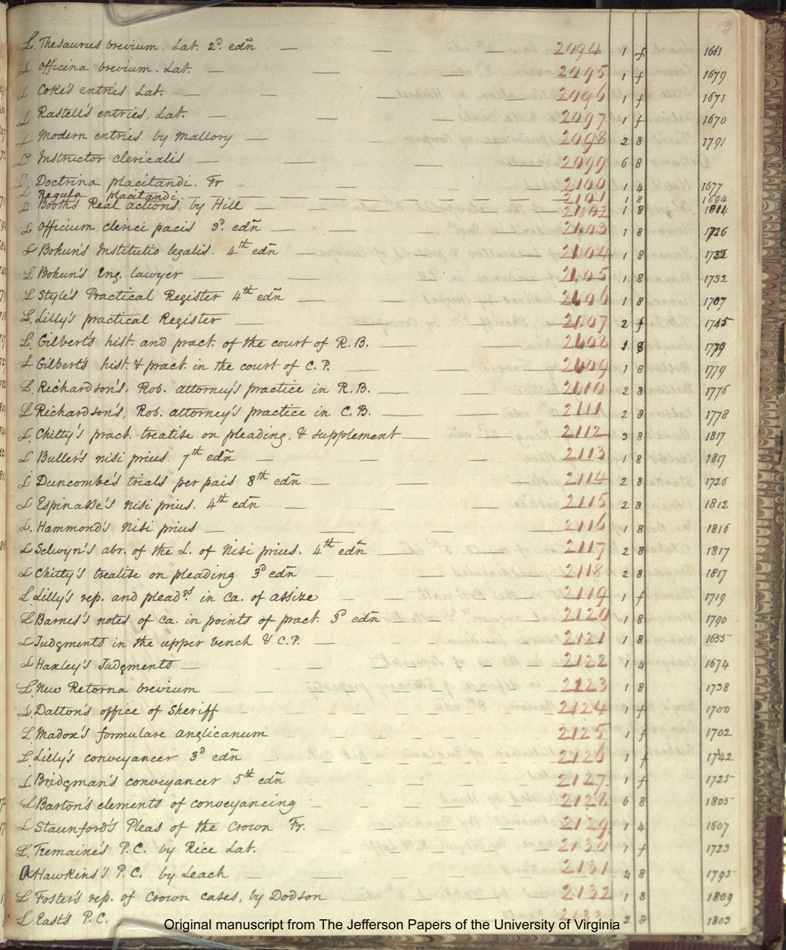 L. Thesaurus brevium. Lat. 2d. edn 2094 1 f 1661
L Officina brevium. Lat. 2095 1 f 1679
L Coke's entries Lat. 2096 1 f 1671
L Rastell's entries. Lat. 2097 1 f 1670
L Modern entries by Mallory 2098 2 8 1791
L Instructor clericalis 2099 6 8
L Doctrina placitandi. Fr 2100 1 4 1677
L Regula placitandi. 2101 1 8 1694
L Booth's Real actions. by Hill 2102 1 8 1811
L Officium clerici pacis 3d. edn 2103 1 8 1726
L Bohun's Institutio legalis. 4th edn 2104 1 8 1732
L Bohun's Eng. lawyer 2105 1 8 1732
L Style's Practical Register 4th edn 2106 1 8 1707
L. Lilly's practical Register 2107 2 f 1745
L. Gilbert's hist. and pract. of the court of K.B. 2108 1 8 1779
L Gilbert's hist. & pract. in the court of C.P. 2109 1 8 1779
L. Richardson's, Rob. attorney's practice in K.B. 2110 2 8 1776
L Richardson's, Rob. attorney's practice in C.B. 2111 2 8 1778
L. Chitty's pract. treatise on pleading, & supplement 2112 3 8 1817
L Buller's nisi prius. 7th edn 2113 1 8 1817
L Duncombe's trials per pais 8th edn 2114 2 8 1726
L Espinasse's nisi prius. 4th edn 2115 2 8 1812
L. Hammond's Nisi prius 2116 1 8 1816
L Selwyn's abr. of the L. of Nisi prius. 4th edn 2117 2 8 1817
L Chitty's treatise on pleading 3d edn 2118 2 8 1817
L Lilly's rep. and pleadgs in ca. of assize 2119 1 f 1719
L Barnes's notes of ca. in points of pract. 3d edn 2120 1 8 1790
L Judgments in the upper bench & C.P. 2121 1 8 1655
L Haxley's Judgments 2122 1 4 1674
L. New Retorna brevium 2123 1 8 1738
L. Dalton's office of Sheriff 2124 1 f 1700
L Madox's formulare anglicanum 2125 1 f 1702
L Lilly's conveyancer 3d edn 2126 1 f 1742
L Bridgman's conveyancer 5th edn 2127 1 f 1725
L Barton's elements of conveyancing 2128 6 8 1805
L Staunford's Pleas of the Crown Fr. 2129 1 4 1607
L. Tremaine's P.C. by Rice Lat. 2130 1 f 1723
Hawkins's P.C. by Leach 2131 4 8 1795
L Foster's rep. of Crown cases, by Dodson 2132 1 8 1809
L East's P.C. 2133 2 8 1803
Original manuscript from The Jefferson Papers of the University of Virginia